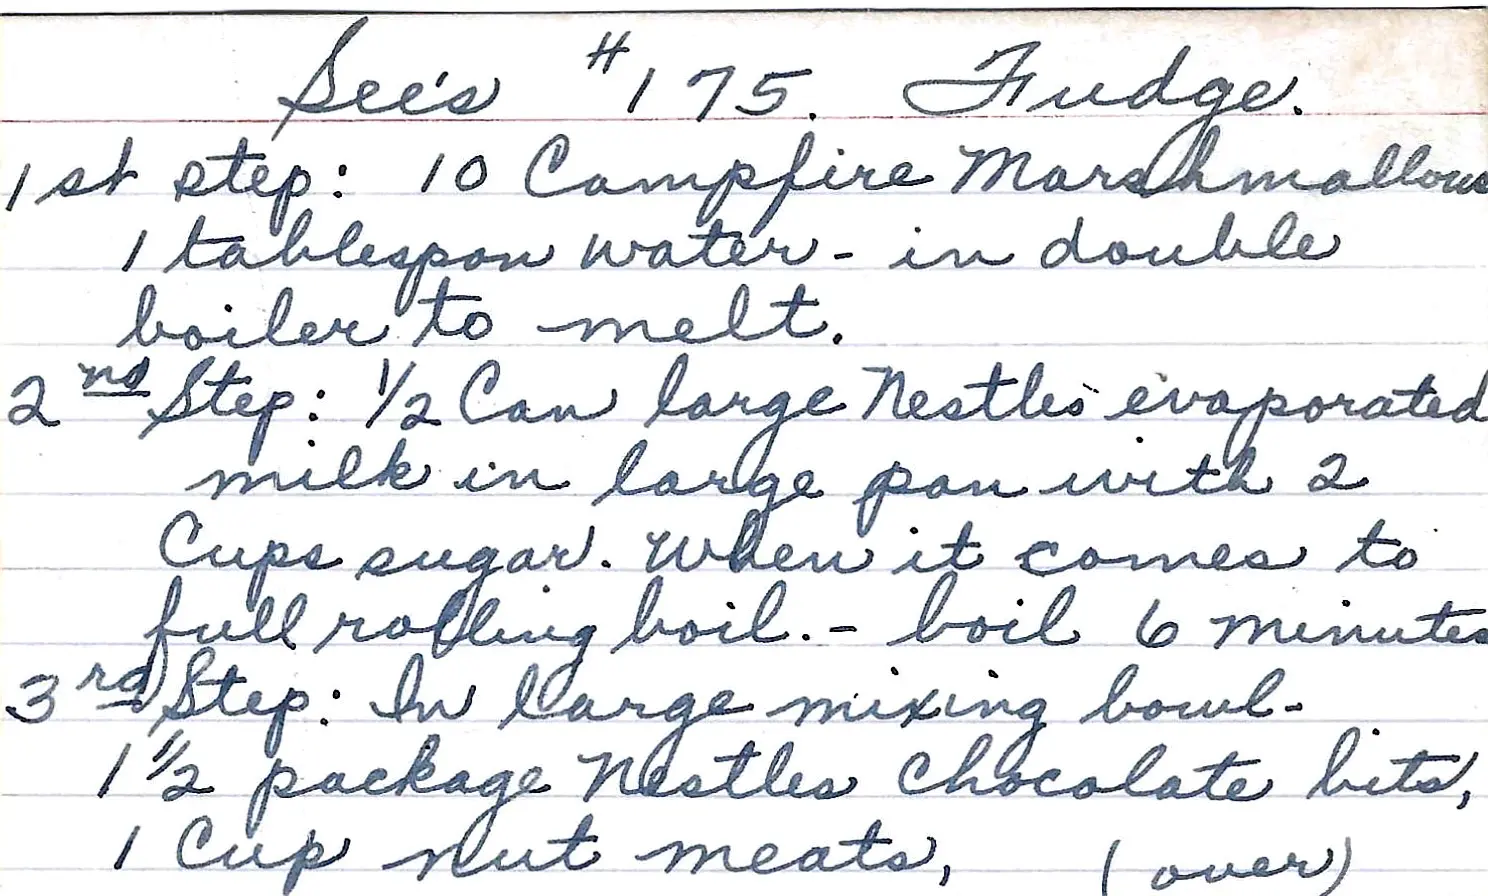 See's #175. Fudge.
1st step: 10 Campfire Marshmallows
1 tablespon water - in double
boiler to melt.
2nd Step: 1/2 Can large Nestles evaporated
milk in large pan with 2
Cups sugar. When it comes to
full rolling boil. - boil 6 minutes
3rd Step: In large mixing bowl-
1 1/2 package Nestles Chocolate bits,
1 Cup nut meats, (over)